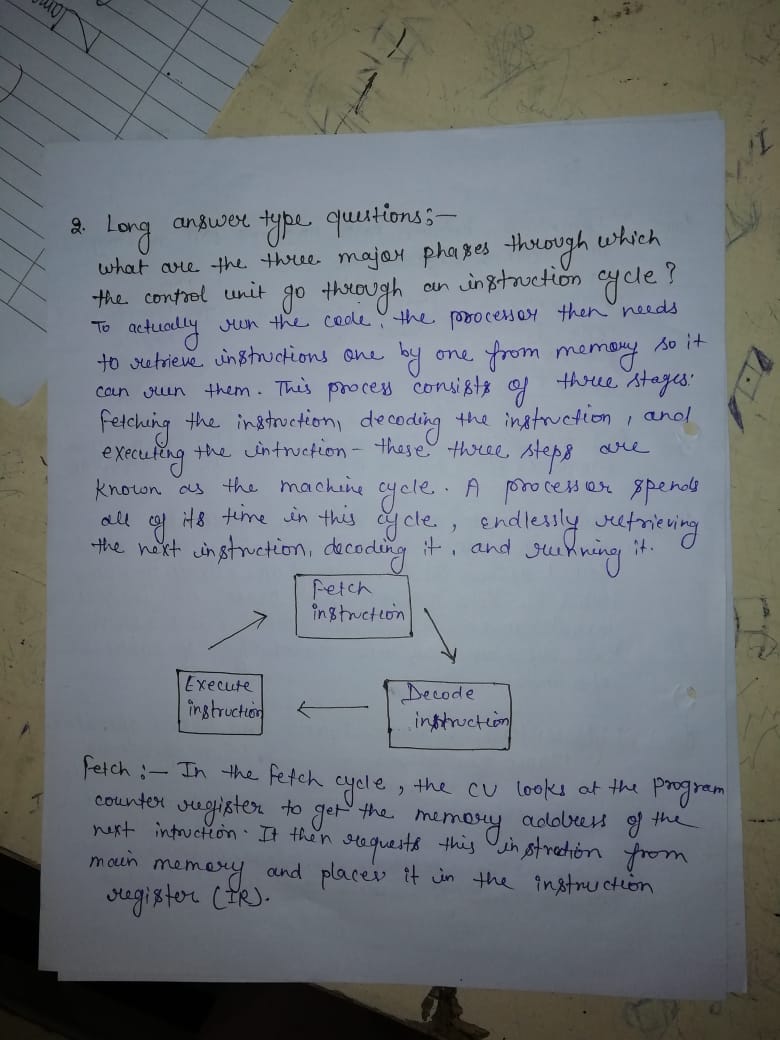 2. Long answer type questions:-
what are the three major phases through which
the control unit go through an instruction cycle?
To actually run the code, the processor then needs
to retrieve instructions one by one from memory so it
can run them. This process consists of three stages:
fetching the instruction, decoding the instruction, and
executing the intruction - these three steps are
known as the machine cycle. A processor spends
all of its time in this cycle, endlessly retrieving
the next instruction, decoding it, and running it.
Fetch
instruction
Execute
instruction
Decode
instruction
Fetch :- In the fetch cycle, the CU looks at the program
counter register to get the memory address of the
next intruction. It then requests this instrction from
main memory and places it in the instruction
register (IR).